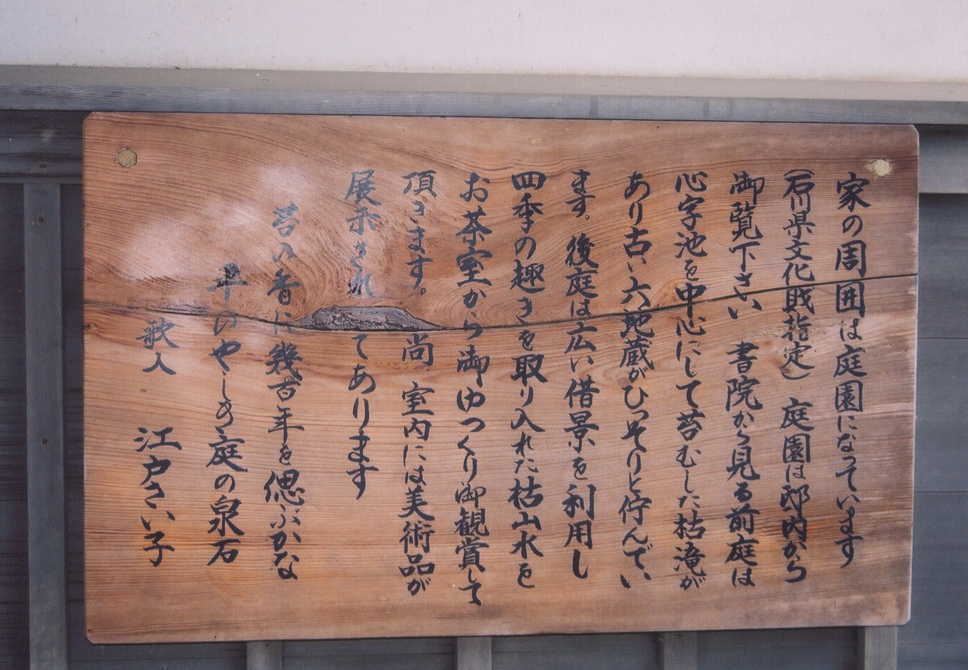 家の周囲は庭園になっています
(石川県文化財指定) 庭園は邸内から
御覧下さい 書院から見る前庭は
心字池を中心にして苔むした枯滝が
あり古い六地蔵がひっそりと佇んでい
ます。後庭は広い借景を利用し
四季の趣きを取り入れた枯山水を
お茶室から御ゆっくり御観賞して
頂きます。尚 室内には美術品が
展示されてあります
苔の香に幾百年を偲ぶかな
平のやしき庭の泉石
歌人 江戸さい子